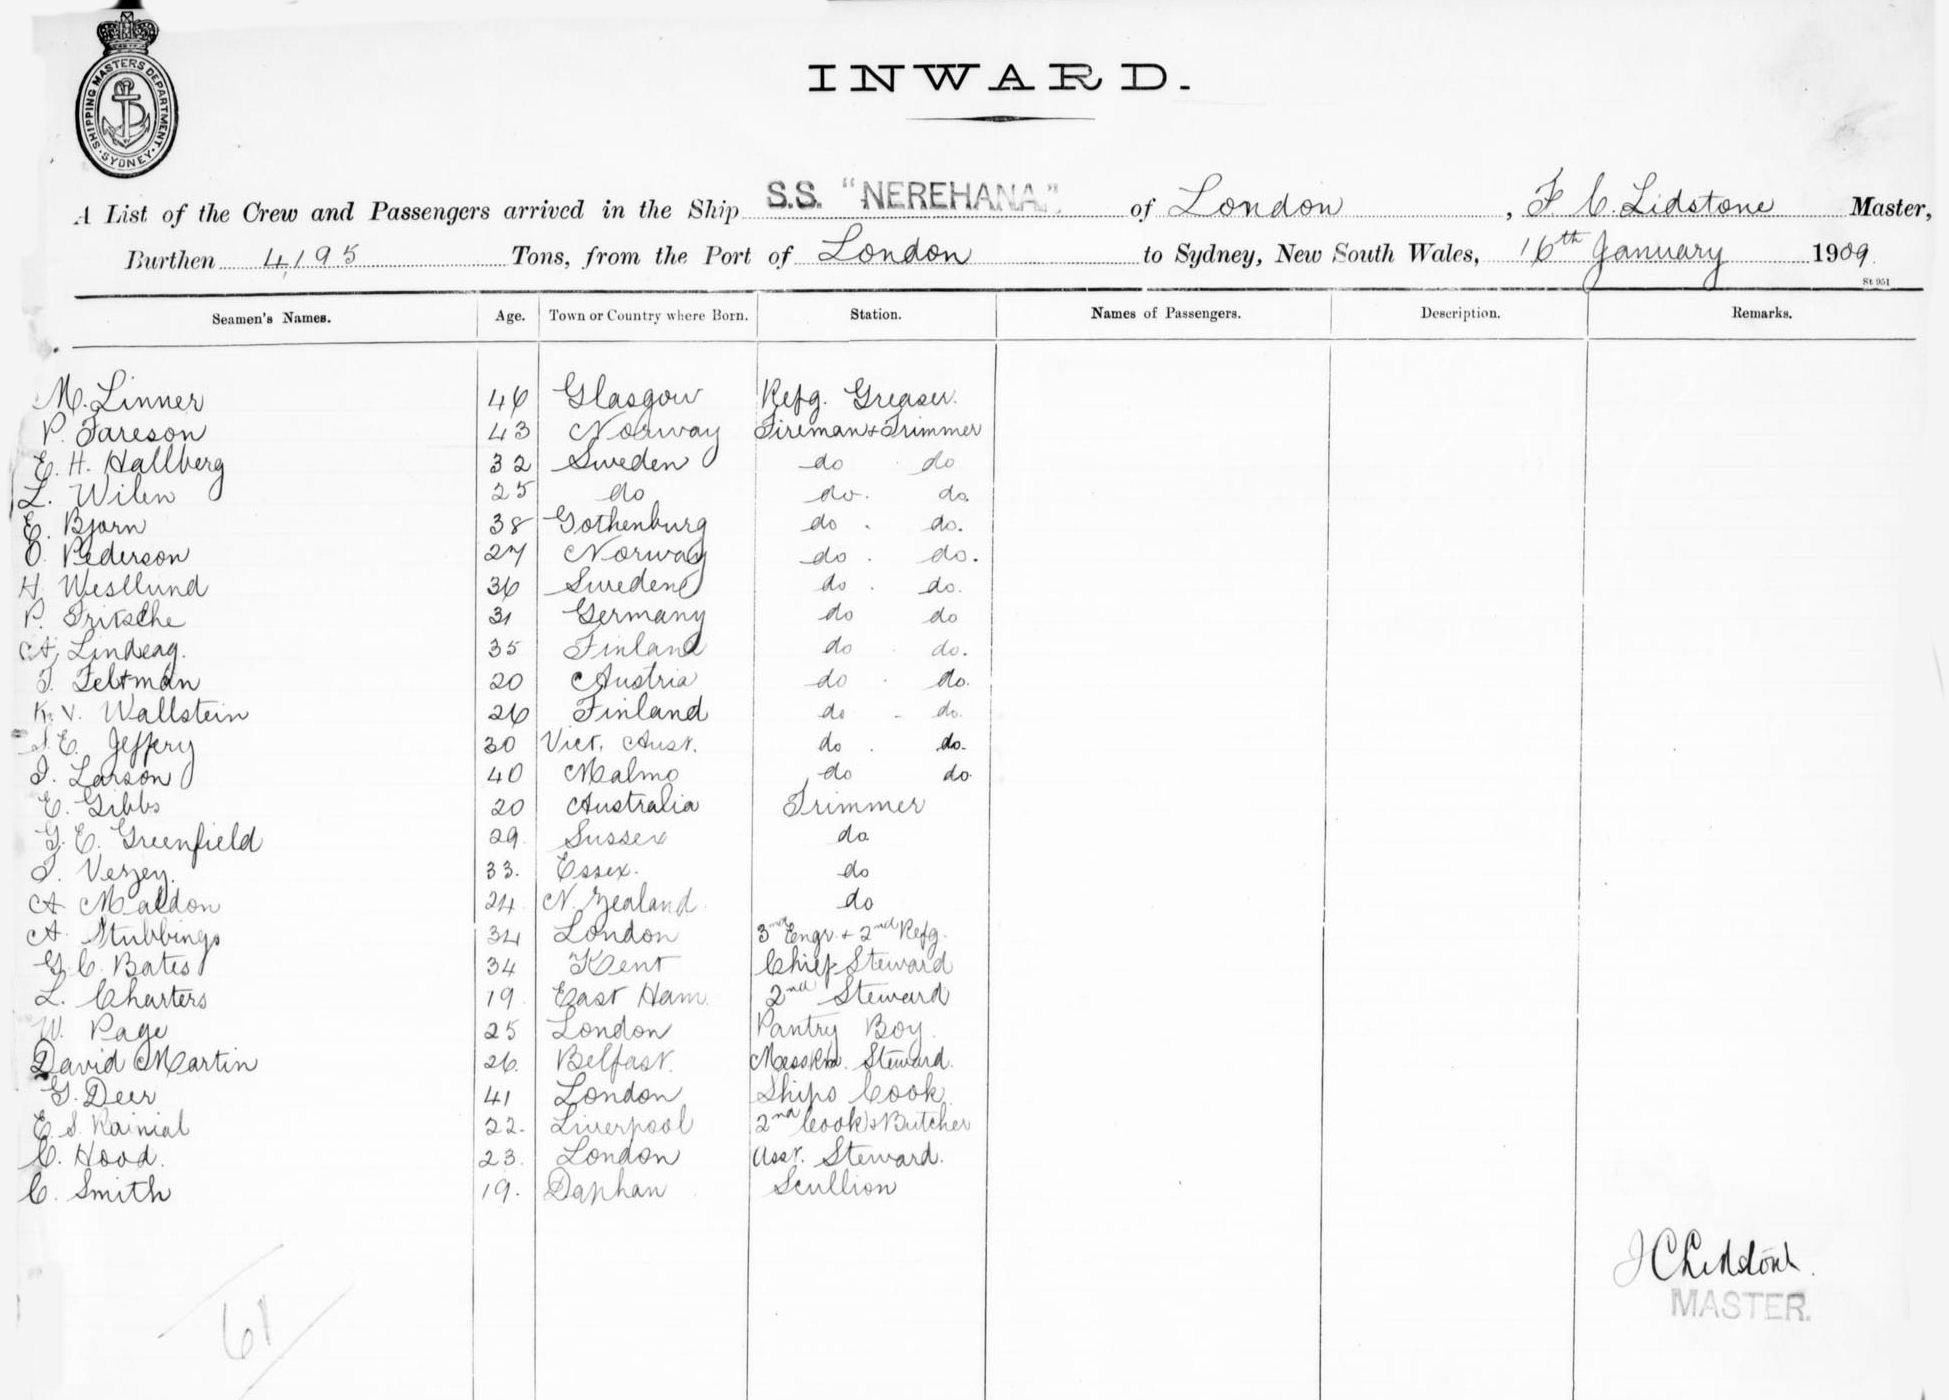 SHIPPING MASTERS DEPARTMENT
SYDNEY
INWARD.
A List of the Crew and Passengers arrived in the Ship S.S. "NEREHANA" of London, F C. Lidstone Master,
Burthen 4,195 Tons, from the Port of London to Sydney, New South Wales, 16th January 1909
St 951
Seamen's Names. Age. Town or Country where Born. Station. Names of Passengers. Description. Remarks.
M. Linner 46 Glasgow Refg. Greaser.
P. Fareson 43 Norway Fireman & Trimmer
E. H. Hallberg 32 Sweden do do
L. Wilen 25 do do. do.
E. Bjorn 38 Gothenburg do. do.
O. Pederson 27 Norway do. do.
H. Westlund 36 Sweden do. do.
P. Fritsche 31 Germany do do
A. Lindeag. 35 Finland do do.
T. Feltman 20 Austria do. do.
K. V. Wallstein 26 Finland do - do.
S. E. Jeffery 30 Vict. Aust. do. do.
I. Larson 40 Malmo do do
E. Gibbs 20 Australia Trimmer
G. E. Greenfield 29 Sussex do
Verzey. 33. Essex. do
A Maldon 24 N. Zealand. do
A. Stubbings 34 London 3rd Engr. & 2nd Refg.
G. C. Bates 34 Kent Chief Steward
L. Charters 19 East Ham. 2nd Steward
W. Page 25 London Pantry Boy.
David Martin 26. Belfast. Messrm. Steward.
G. Deer 41 London Ships Cook
E. S. Rainial 22. Liverpool 2nd Cook & Butcher
C. Hood. 23. London Asst. Steward.
C. Smith 19. Daphan Scullion
61
MASTER.